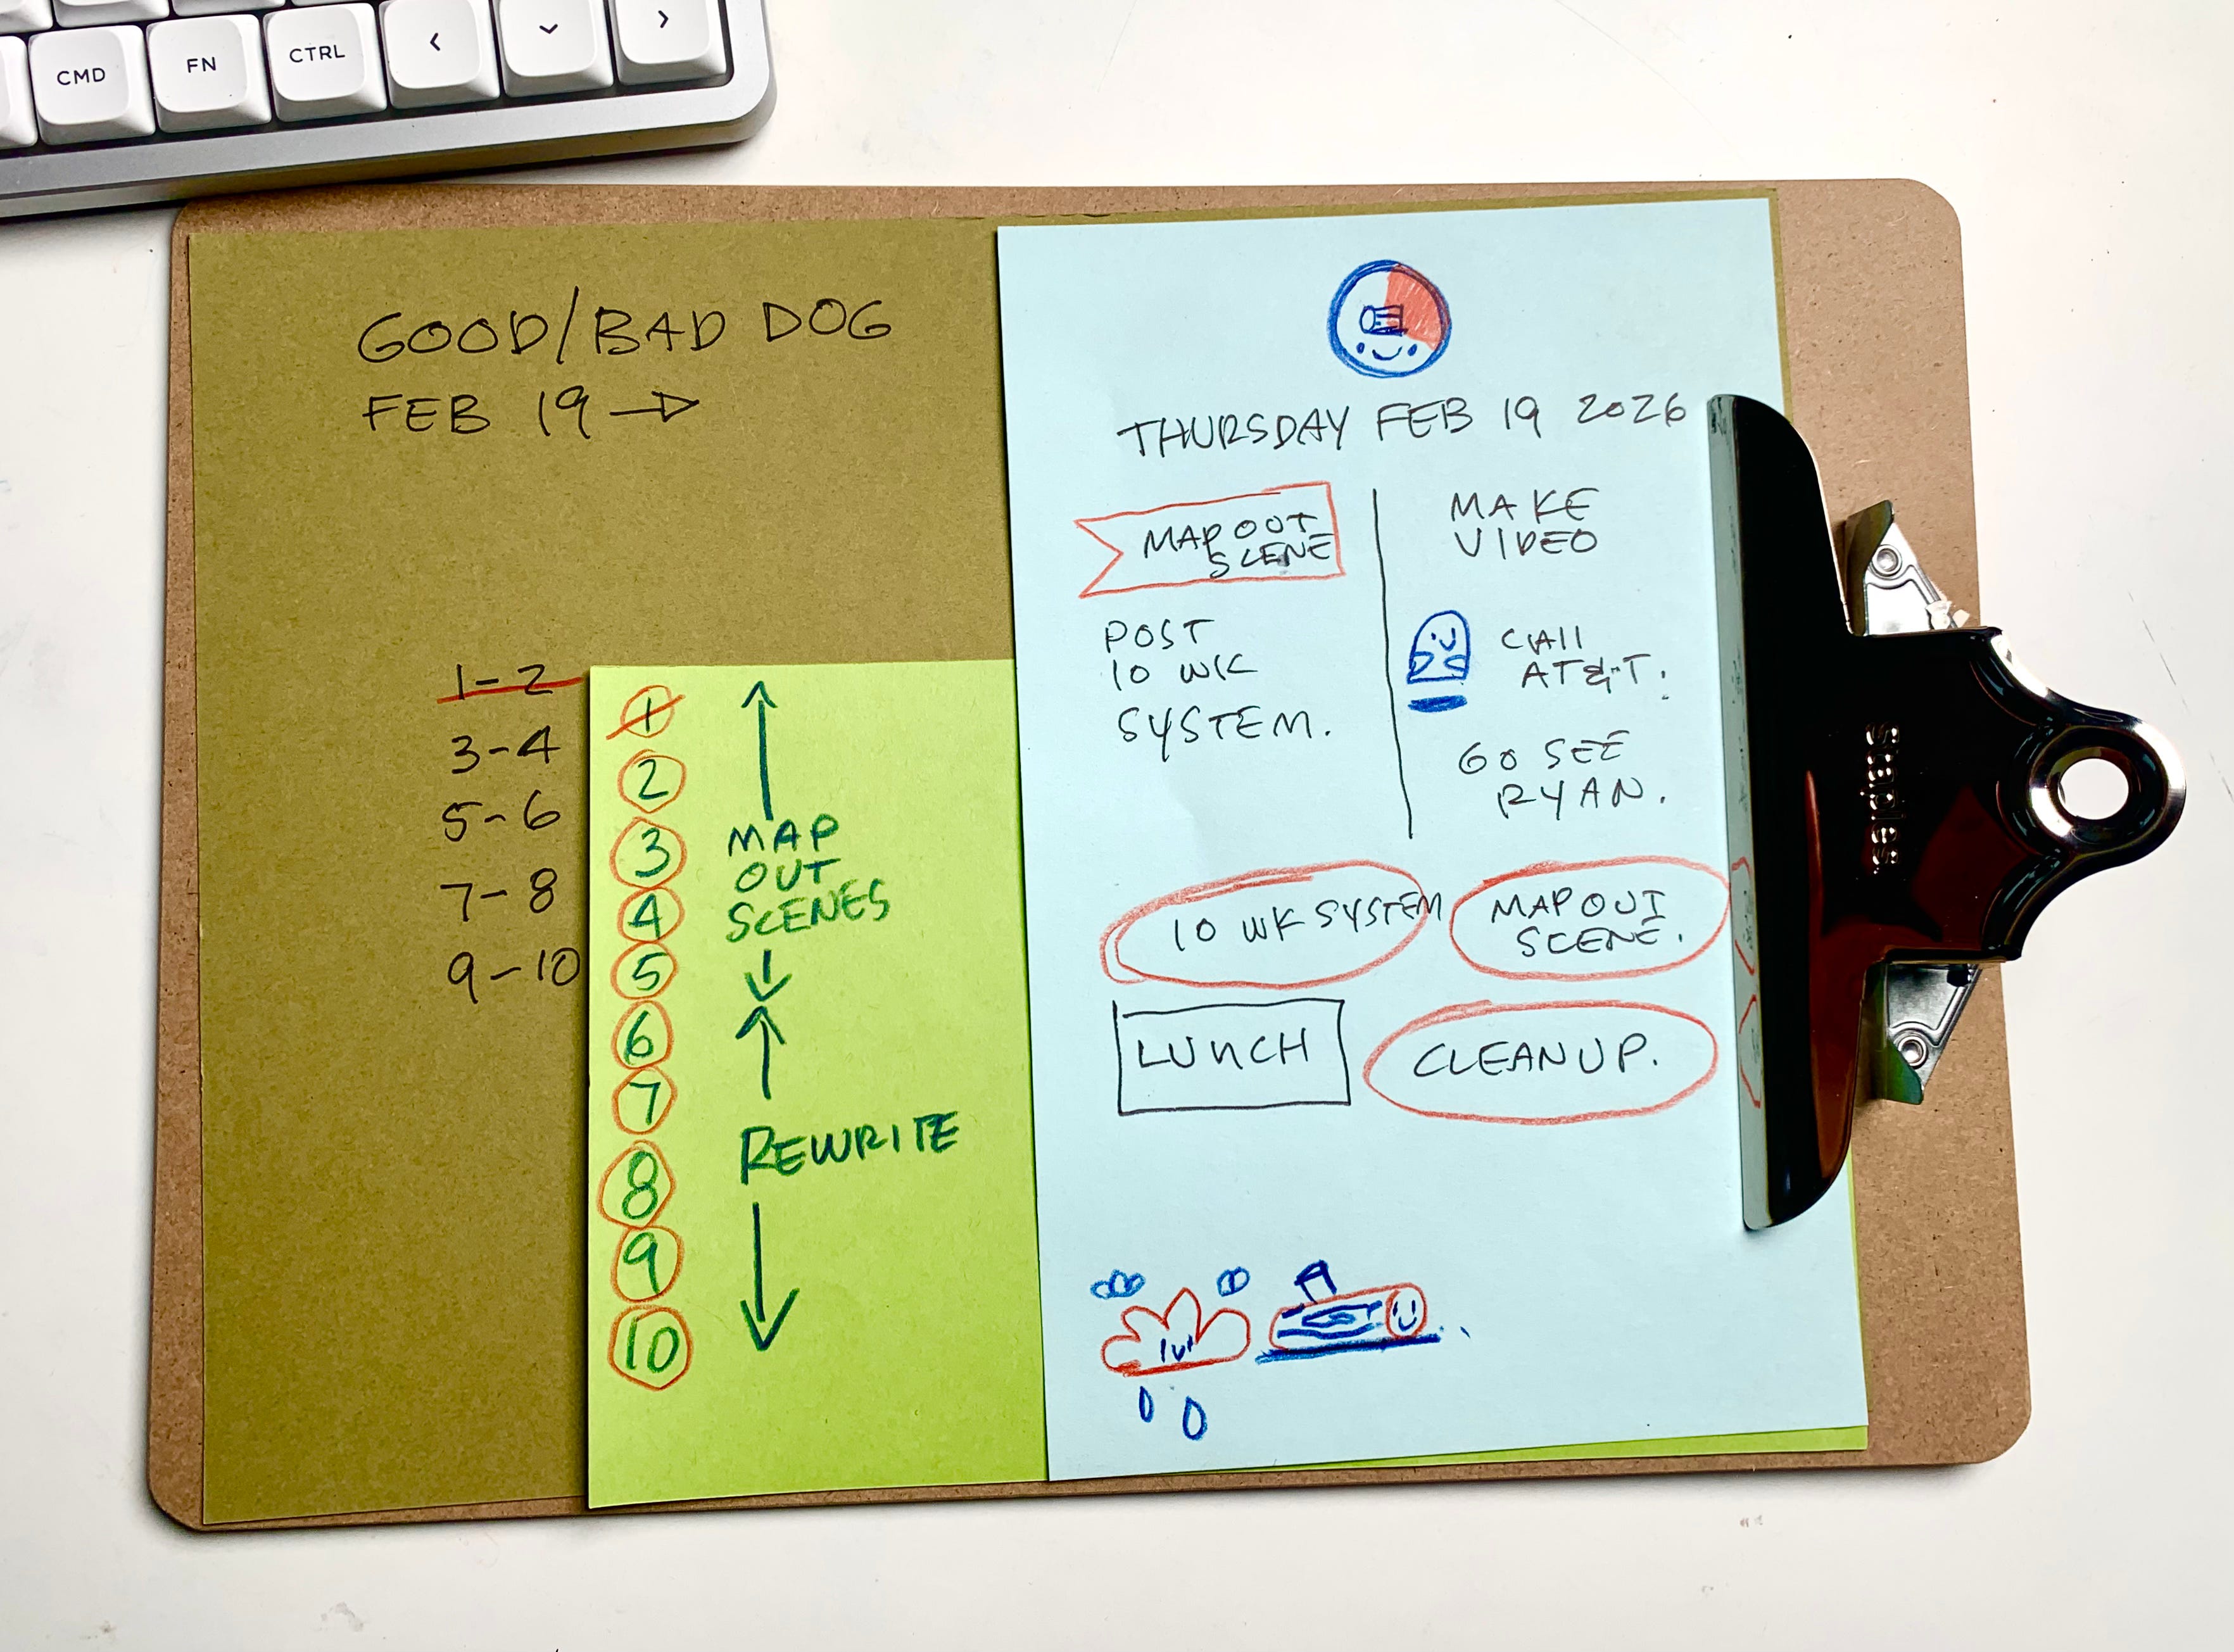 CMD
FN
CTRL
<
>
GOOD/BAD DOG
FEB 19 →
1-2
3-4
5-6
7-8
9-10
1
2
3
4
5
6
7
8
9
10
MAP
OUT
SCENES
REWRITE
THURSDAY FEB 19 2026
MAP OUT
SCENE
POST
10 WK
SYSTEM.
MAKE
VIDEO
CALL
AT&T.
GO SEE
RYAN.
10 WK SYSTEM
MAP OUT
SCENE.
LUNCH
CLEAN UP.
Staples